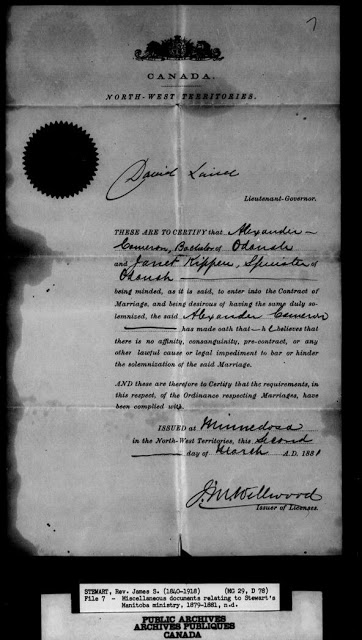 7
CANADA.
NORTH-WEST TERRITORIES.
David Laird
Lieutenant-Governor.
THESE ARE TO CERTIFY that Alexander
Cameron, Bachelor of Odanah
and Janet Kippen, Spinster of
Odanah
being minded, as it is said, to enter into the Contract of
Marriage, and being desirous of having the same duly so-
lemnized, the said Alexander Cameron
has made oath that he believes that
there is no affinity, consanguinity, pre-contract, or any
other lawful cause or legal impediment to bar or hinder
the solemnization of the said Marriage.
AND these are therefore to Certify that the requirements, in
this respect, of the Ordinance respecting Marriages, have
been complied with.
ISSUED at Minnedosa
in the North-West Territories, this Second
day of March A.D. 1881
Issuer of Licenses.
STEWART, Rev. James S. (1840-1918) (MG 29, D 78)
File 7 - Miscellaneous documents relating to Stewart's
Manitoba ministry, 1879-1881, n.d.
PUBLIC ARCHIVES
ARCHIVES PUBLIQUES
CANADA